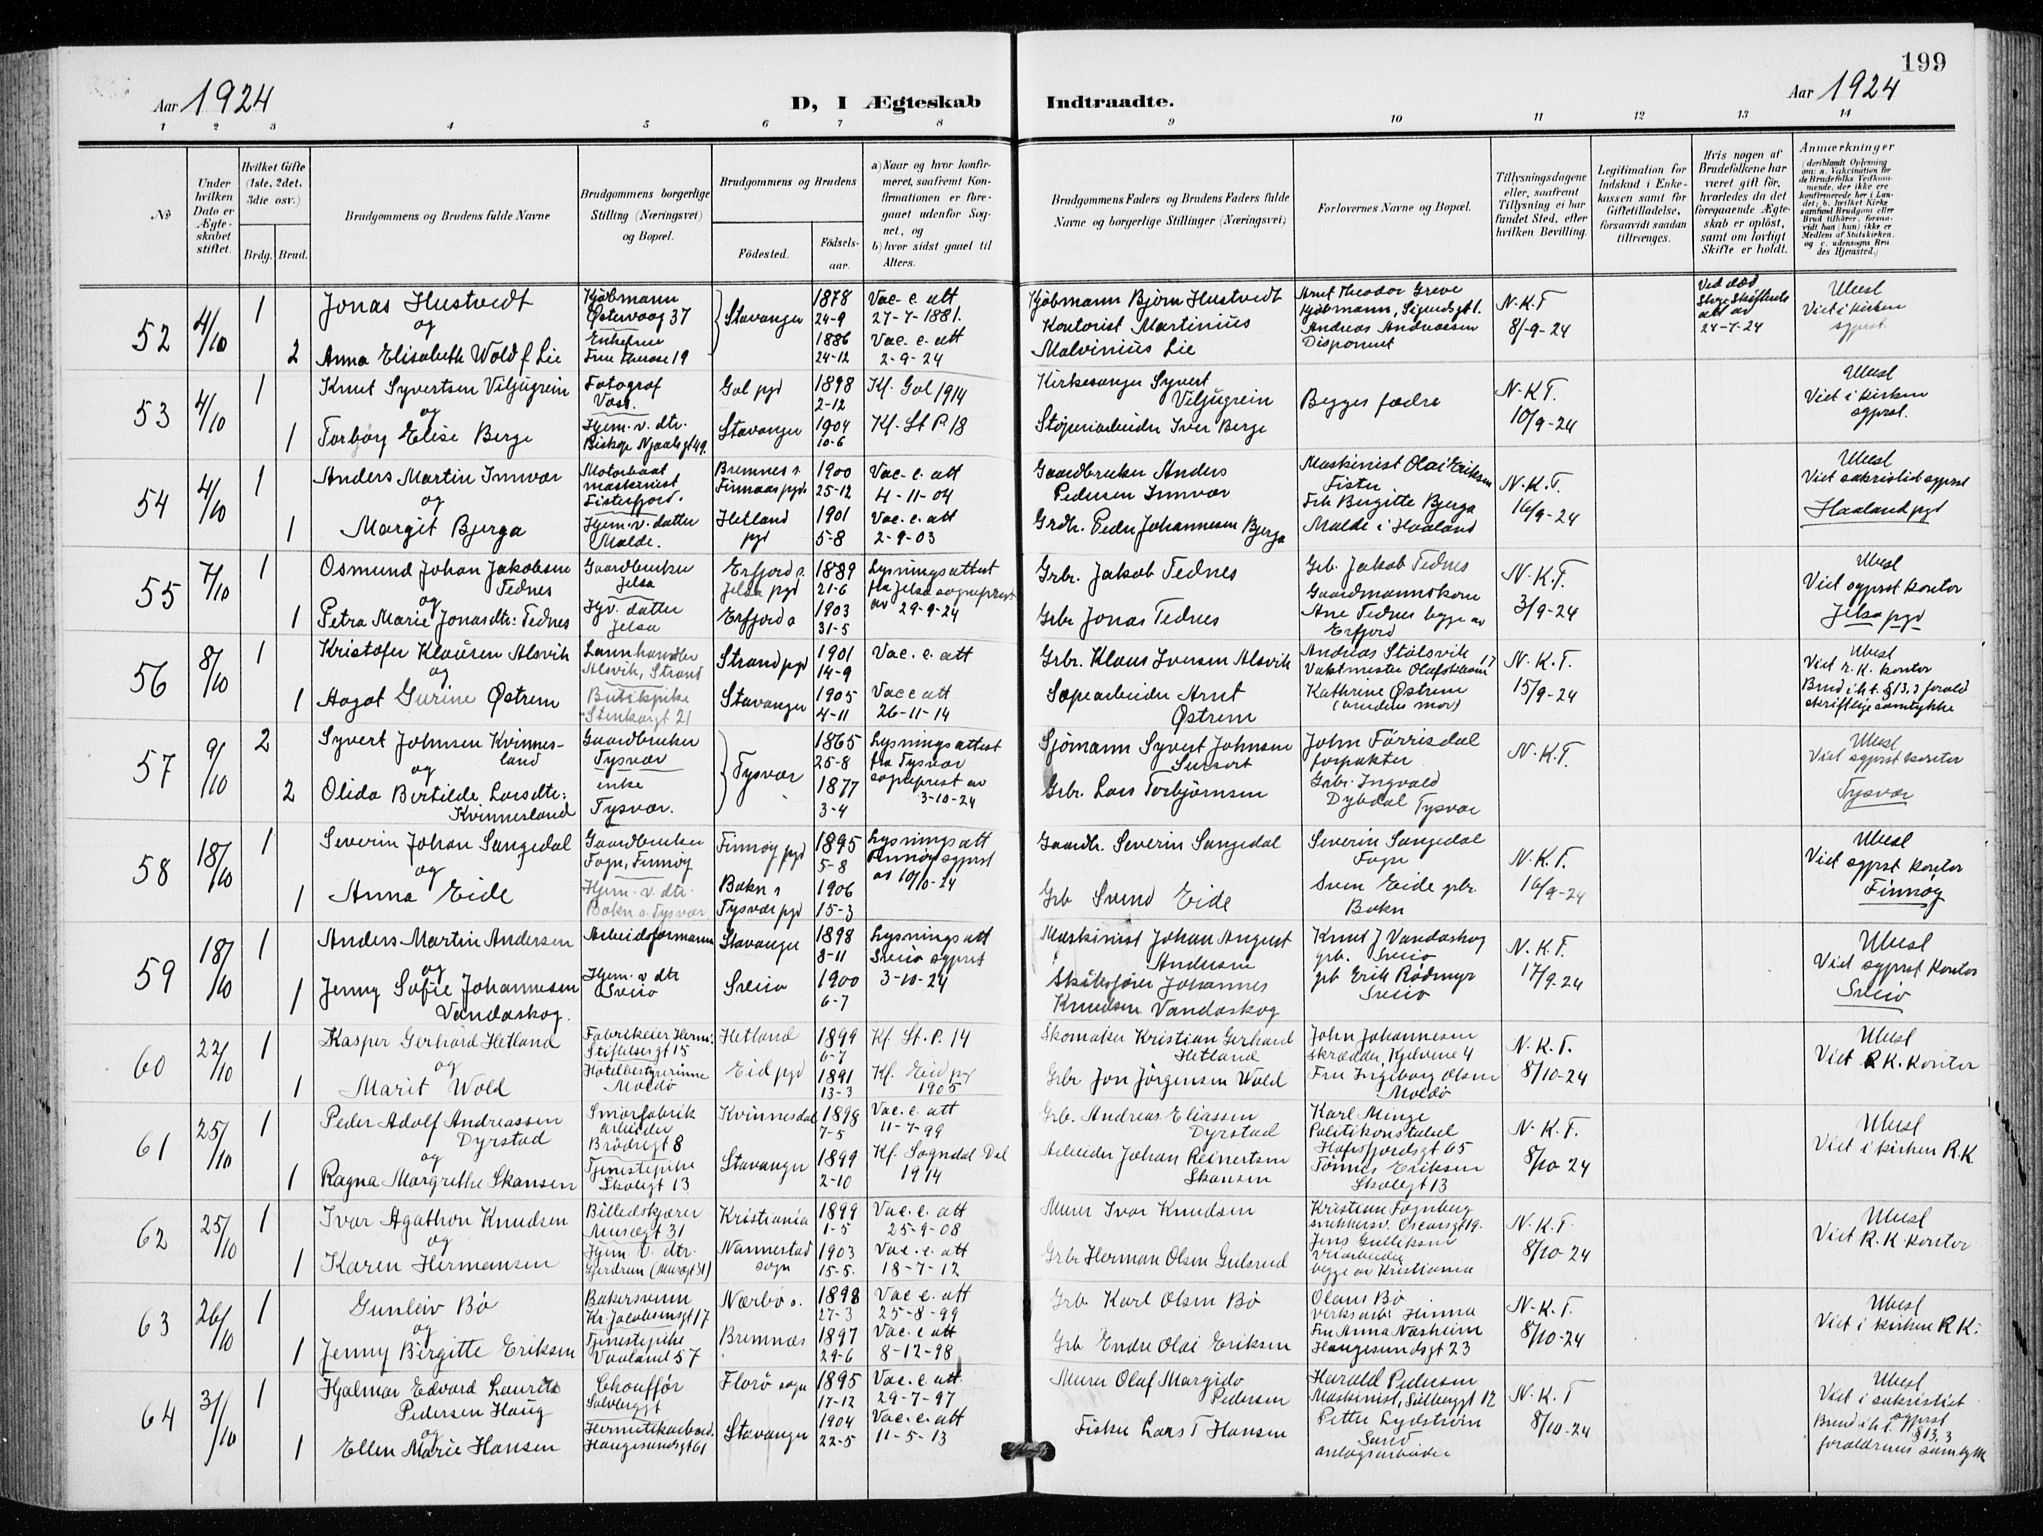 199
Aar 1924
D, I Ægteskab Indtraadte.
Aar 1924
1 2 3 4 5 6 7 8 9 10 11 12 13 14
No
Under hvilken Dato er Ægteskabet stiftet.
Hvilket Gifte (1ste, 2det, 3die osv.)
Brdg. Brud.
Brudgommens og Brudens fulde Navne
Brudgommens borgerlige Stilling (Næringsvei) og Bopæl.
Brudgommens og Brudens
Fødested.
Fødselsaar.
a) Naar og hvor konfirmeret, saafremt Konfirmationen er foregaaet udenfor Sognet, og
b) hvor sidst gaaet til Alters.
Brudgommens Faders og Brudens Faders fulde Navne og borgerlige Stillinger (Næringsvei)
Forlovernes Navne og Bopæl.
Tillysningsdagene eller, saafremt Tillysning ei har fundet Sted, efter hvilken Bevilling.
Legitimation for Indskud i Enkekassen samt for Giftetilladelse, forsaavidt saadan tiltrænges.
Hvis nogen af Brudefolkene har været gift før, hvorledes da det foregaaende Ægteskab er opløst, samt om lovligt Skifte er holdt.
Anmærkninger
52 4/10 1 Jonas Hustvedt
og
2 Anna Elisabeth Wold f. Lie
Kjøbmann
Østervaag 37
Enkefrue
Stavanger
1878
24-9
1886
24-12
Vac. e. att
27-7-1881.
Vac. e. att
2-9-24
Kjøbmann Bjørn Hustvedt
Kontorist Martinius
Malvinius Lie
Arnt Theodor Greve
Kjøbmann, Sigurdsgt 1.
Andreas Andreassen
Disponent
N.K.T
8/-9-24
Ved død
24-7-24
Ubesl
Viet i kirken
sgprst.
53 4/10 1 Knut Syvertsen Viljugrein
og
1 Torborg Elise Berge
Fotograf
Voss.
Hjem. v. dtr.
Biskop Njaalsgt 49.
Gol pgd
Stavanger
1898
2-12
1904
10-6
Kf. Gol 1914
Kf. St P. 18
Kirkesanger Syvert
Viljugrein
Støperiarbeider Iver Berge
Begges fædre
N-K T.
10/9-24
Ubesl
Viet i kirken
sgprst.
54 4/10 1 Anders Martin Innvær
og
1 Margit Bjerga
Motorbaat
maskinist
Fisterfjord.
Hjem. v. datter
Malde.
Bremnes s.
Finnaas pgd
Hetland
pgd
1900
25-12
1901
5-8
Vac. e. att
4-11-04
Vac. e. att
2-9-03
Gaardbruker Anders
Pedersen Innvær
Grdbr. Peder Johannesen Bjerga
Maskinist Olai Eriksen
Fister
Frk Birgitte Bjerga
Malde i Haaland
N.K.T.
16/9-24
Ubesl
Viet sakristiet sgprst
Haaland pgd
55 7/10 1 Osmund Johan Jakobsen
Tednes
og
1 Petra Marie Jonasdtr: Tednes
Gaardbruker
Jelsa
Hjv. datter
Jelsa
Erfjord s.
Jelsa pgd
Erfjord s
1889
21-6
1903
31-5
Lysningsattest
fra Jelsa sogneprest
av 29-9-24
Grbr. Jakob Tednes
Grbr Jonas Tednes
Grb. Jakob Tednes
Gaardmannskone
Ane Tednes begge av
Erfjord
N.K.T.
3/9-24
Ubesl
Viet sgprst kontor
Jelsa pgd
56 8/10 1 Kristofer Klausen Alsvik
og
1 Aagot Gurine Østrem
Lannhandler
Alsvik, Strand
Butikpike
Stenkargt 21
Strand pgd
Stavanger
1901
14-9
1905
4-11
Vac. e. att
Vac e att
26-11-14
Grbr. Klaus Iversen Alsvik
Sæpearbeider Arnt
Østrem
Andreas Stølsvik
Vaktmester Olafskleiv 17
Kathrine Østrem
(brudens mor)
N.K.T.
15/9-24
Ubesl
Viet R.K. kontor
Brud i h.t. §13.3 forald
skriftlige samtykke
57 9/10 2 Syvert Johnsen Kvinnesland
og
2 Olida Bertilde Larsdtr:
Kvinnesland
Gaardbruker
Tysvær
enke
Tysvær.
Tysvær
1865
25-8
1877
3-4
Lysningsattest
fra Tysvær
sogneprest av
3-10-24
Sjømann Syvert Johnsen
Grbr. Lars Torbjørnsen
John Førrisdal
forpakter
Grbr. Ingvald
Dybdal Tysvær
N.K.T.
Ubesl
Viet sgprst kontor
Tysvær
58 18/10 1 Severin Johan Sangedal
og
1 Anna Eide
Gaardbruker
Fogn, Finnøy
Hjem. v. dtr.
Bokn s. Tysvær
Finnøy pgd
Bokn s
Tysvær pgd
1895
5-8
1906
15-3
Lysnings att
Finnøy sgprst
av 10/10-24
Gaardbr. Severin Sangedal
Grb Svend Eide
Severin Sangedal
Fogn
Sven Eide grbr.
Bokn
N.K.T.
16/9-24
Ubesl
Viet sgprst kontor
Finnøy
59 18/10 1 Anders Martin Andersen
og
1 Jenny Sofie Johannesen
Vandaskog.
Arbeidsformann
Hjem. v dtr
Sveio
Stavanger
Sveio
1898
8-11
1900
6-7
Lysnings att
Sveio sgprst
3-10-24
Maskinist Johan August
Andersen
Johannes
Knudsen Vandaskog
Knut J Vandaskog
grb. Sveio
grb Erik Rødmyr
Sveio
N.K.T.
17/9-24
Ubesl
Viet sgprst kontor
Sveio
60 22/10 1 Kasper Gerhard Hetland
og
1 Marit Wold
Fabrikeier Herm:
Stiftelsesgt 15
Hotelbestyrerinne
Moldø
Hetland
Eid pgd
1899
6-7
1891
13-3
Kf. St. P. 14
Kf. Eid pgd
1905
Skomaker Kristian Gerhard
Hetland
Grbr Jon Jörgensen Wold
John Johannesen
skrædder, Kjelvene 4
Fru Ingeborg Olsen
Moldø
N.K.T.
8/10-24
Ubesl
Viet R.K. kontor
61 25/10 1 Peder Adolf Andreassen
Dyrstad
og
1 Ragna Margrethe Skansen
Smørfabrik
arbeider
Brödregt 8
Tjenestepike
Skolegt 13
Kvinnesdal
Stavanger
1898
7-5
1899
2-10
Vac. e. att
11-7-99
Kf. Sogndal Dal
1914
Grb. Andreas Eliassen
Dyrstad
Arbeider Johan Reinertsen
Skansen
Karl Minge
Politikonstabel
Hafrsfjordsgt 65
Tönnes Eriksen
Skolegt 13
N.K.T.
8/10-24
Ubesl
Viet i kirken R.K
62 25/10 1 Ivar Agathon Knudsen
og
1 Karen Hermansen
Billedskjærer
Musegt 31
Hjem. v. dtr.
Gjerdrum (Musegt 31)
Kristiania
Nannestad
sogn
1899
1-5
1903
15-5.
Vac. e. att
25-9-08
Vac. e. att
18-7-12
Murer Ivar Knudsen
Grbr Herman Olsen Gulsrud
Kristian Fognberg
snekkersv. Oscarsgt 19.
Jens Gulliksen
begge av Kristiania
N.K.T
8/10-24
Ubesl
Viet R.K kontor
63 26/10 1 Gunleiv Bø
og
1 Jenny Birgitte Eriksen
Bakersvenn
Kr. Jacobsensgt 17
Tjenestepike
Vaaland 57
Nærbø s.
Bremnæs
1898
27-3
1897
29-6
Vac e. att
25-8-99
Vac. e att
8-12-98
Grb. Karl Olsen Bø
Grb Endre Olai Eriksen
Olaus Bø
Hinna
Fru Anna Næsheim
Haugesundsgt 23
N.K.T.
8/10-24
Ubesl
Viet i kirken R K.
64 31/10 1 Hjalmar Edvard Laurits
Pedersen Haug
og
1 Ellen Marie Hansen
Chouffør
Solbergst
Hermetikarbeid.
Haugesundsgt 61
Florø sogn
Stavanger
1895
17-12
1904
22-5
Vac. e. att
29-7-97
Vac. e. att
11-5-13
Murer Olaf Margido
Pedersen
Fisker Lars T Hansen
Harald Pedersen
Maskinist, Solbergt 12
Petter Lydström
Sund
anlægsarbeider
N.K.T
8/10-24
Ubesl
Viet i sakristiet
sgprst
Brud i h.t. §13,3
foreldrenes samtykk